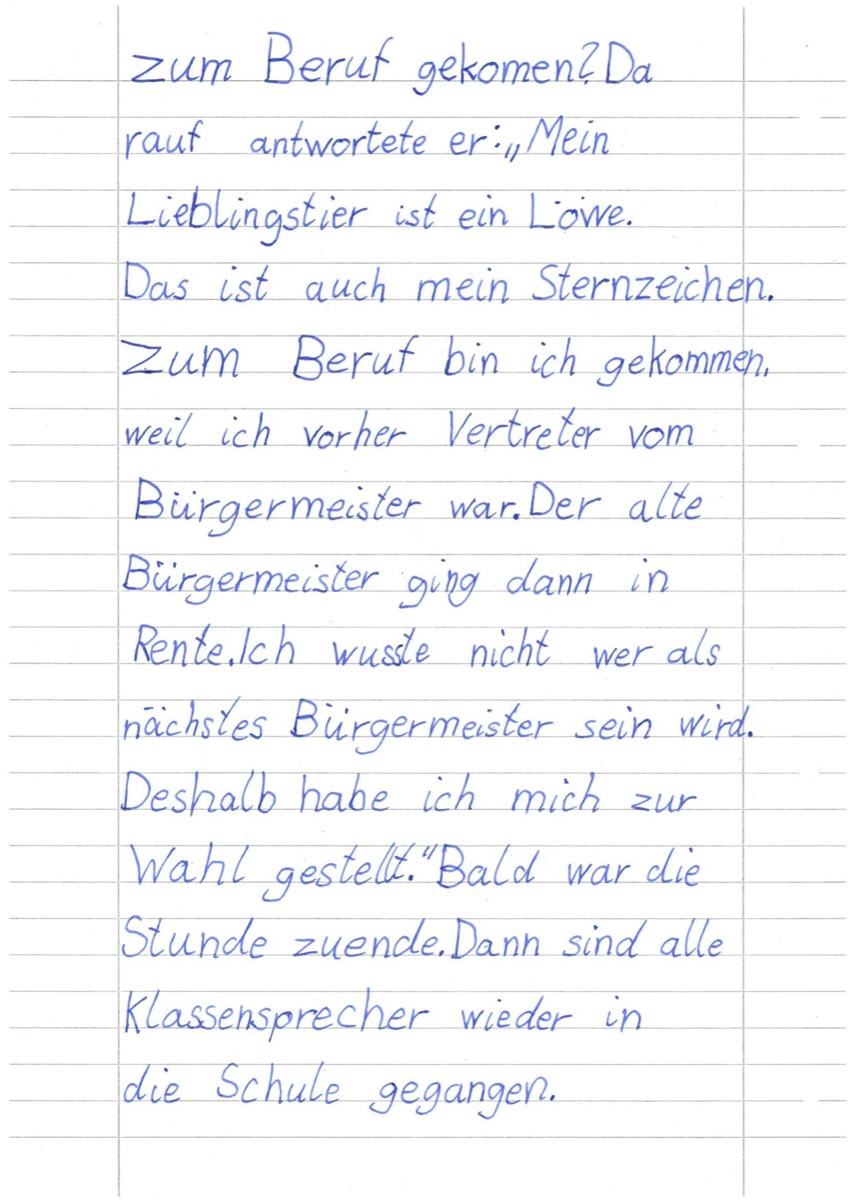 zum Beruf gekomen? Da
rauf antwortete er: „Mein
Lieblingstier ist ein Löwe.
Das ist auch mein Sternzeichen.
Zum Beruf bin ich gekommen,
weil ich vorher Vertreter vom
Bürgermeister war. Der alte
Bürgermeister ging dann in
Rente. Ich wusste nicht wer als
nächstes Bürgermeister sein wird.
Deshalb habe ich mich zur
Wahl gestellt.“ Bald war die
Stunde zuende. Dann sind alle
Klassensprecher wieder in
die Schule gegangen.